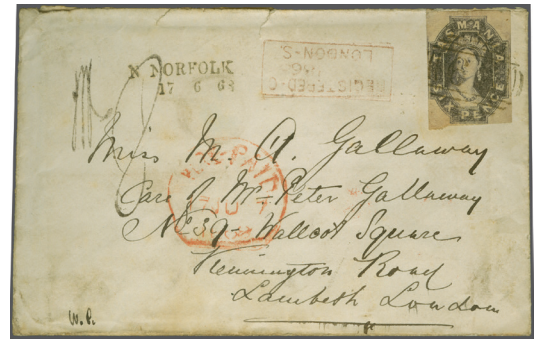 N NORFOLK
17 6 63
REGISTERED-O
LONDON-S.
SMAN
PENCE
Miss M. A. Gallaway
Care of Mr Peter Gallaway
No 39 - Wallcot Square
Kennington Road
Lambeth London
W. P.